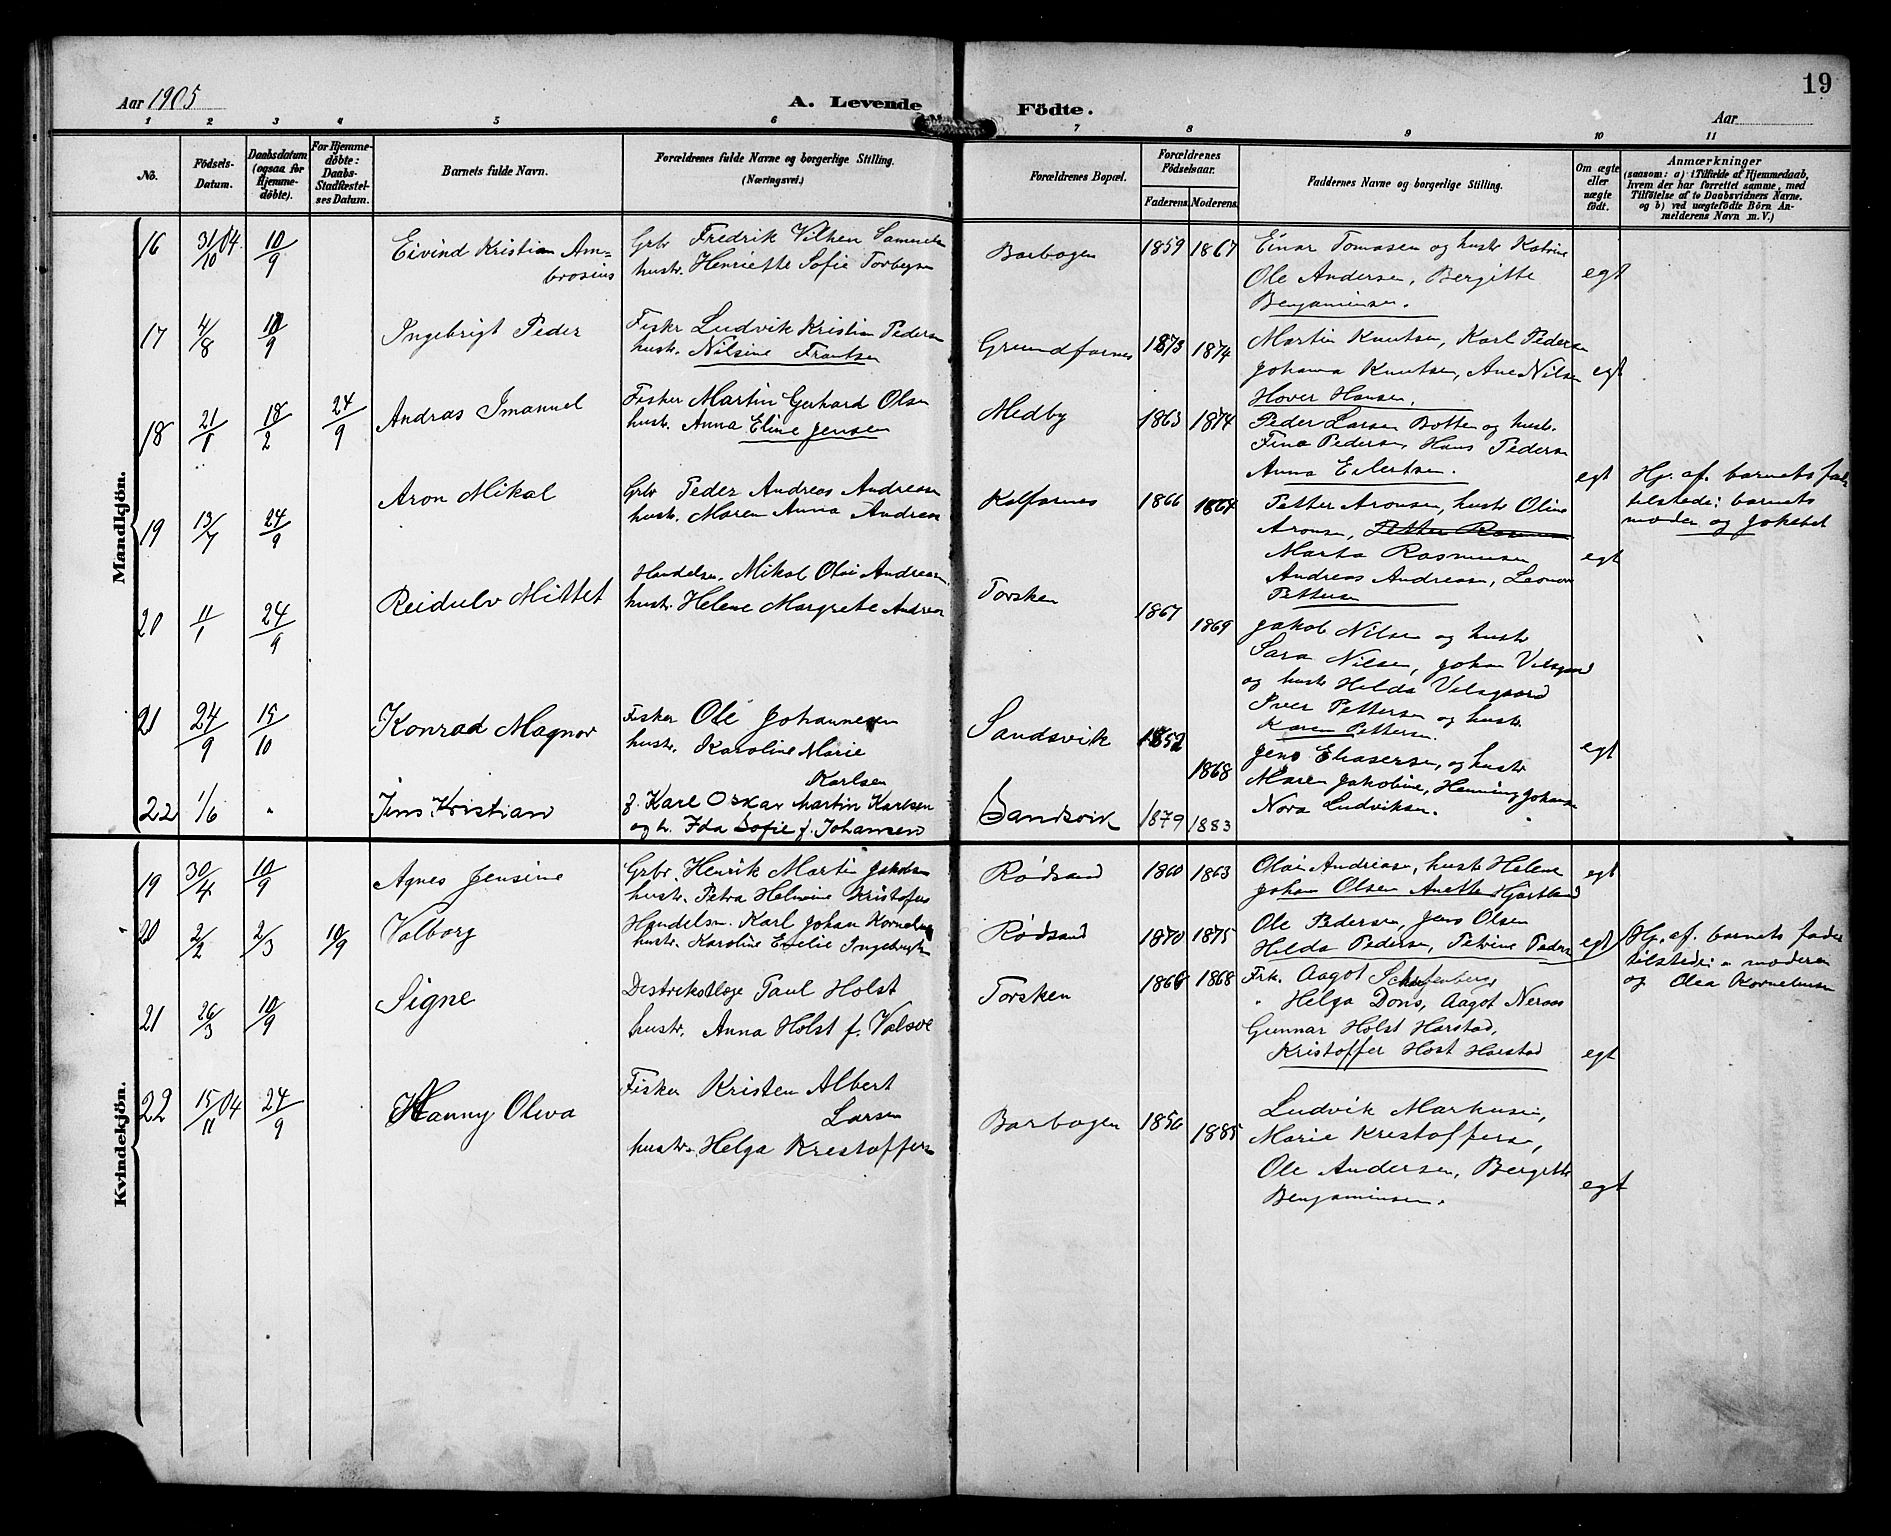 19
Aar 1905
A. Levende Födte.
Aar
1 2 3 4 5 6 7 8 9 10 11
No.
Födsels-Datum.
Daabsdatum (ogsaa for Hjemmedöbte).
For Hjemmedöbte: Daabs-Stadfæstelses Datum.
Barnets fulde Navn.
Forældrenes fulde Navne og borgerlige Stilling.
(Næringsvei.)
Forældrenes Bopæl.
Forældrenes Födselsaar.
Faderens. Moderens.
Faddernes Navne og borgerlige Stilling.
Om ægte eller uægte födt.
Anmærkninger
(saasom: a) i Tilfælde af Hjemmedaab,
hvem der har forrettet samme, med
Tilföielse af to Daabsvidners Navne.
og b) ved uægtefödte Börn An-
melderens Navn m. V.)
Mandkjön.
16 31/10 04. 10/9 Eivind Kristian Am-
brosius
Grbr Fredrik Vilhen
hustr. Henriette Sofie
Barbogen 1859 1867
Einar Tomasen og hustr Katrine
Ole Andersen, Bergitte
Benjaminsen.
egt
17 4/8 10/9 Ingebrigt Peder
Fisker Ludvik Kristian Pedersen
hustr. Nilsine Frantsen
Grundfarnes 1873 1874
Martin Knutsen, Karl Pedersen
Johanna Knutsen, Ane Nilsen
Hover Hansen.
egt
18 21/1 18/2 24/9 Andras Imanuel
Fisker Martin Gerhard Olsen
hustr. Anna Eline Jensen
Medby 1863 1874
Peder Larsen Botten og hustr.
Fina Pedersen, Hans Pedersen
Anna Eilertsen.
egt
Hj. af. barnets fader
tilstede: barnets
moder og
19 13/7 24/9 Aron Mikal
Grbr Peder Andreas Andreasen
hustr. Maren Anna Andreasen
Kalfarnes 1866 1864
Petter Aronsen, hustr Oline
Aronsen,
Marta Rasmusen
Andreas Andreasen, Leonora
Pettersen
egt
20 11/1 24/9 Reidulv Mittet
Handelsm. Mikal Olai Andreasen.
hustr. Helene Margrete Andreasen
Torsken 1867 1869
Jakob Nilsen og hustr
Sara Nilsen, Johan Valsgaard
og hustr Hilda Valsgaard
Iver Pettersen og hustr.
Karen Pettersen.
21 24/9 15/10 Konrad Magnor
Fisker Ole Johannesen
hustr. Karoline Marie
Karlsen
Sandsvik 1852 1868
Jens Eliasersen, og hustr
Maren Jakobine, Henning Johansen
Nora Ludviksen.
egt
22 1/6 " Jens Kristian
f. Karl Oskar Martin Karlsen
og h. Ida Sofie f. Johansen
Sandsvik 1879 1883
Kvindekjön.
19 30/4 10/9 Agnes Jensine
Grbr Henrik Martin Jakobsen
hustr. Petra Helmine Kristofers
Rødsand 1860 1863
Olai Andreasen, hustr Helene
Johan Olsen Anette Hjortland
egt
20 2/2 2/3 10/9 Valborg
Handelsm. Karl Johan Kornelius
hustr. Karoline Emelie Ingebrigtsen
Rødsand 1870 1875
Ole Pedersen, Jens Olsen
Hilda Pedersen, Petrine Pedersen
egt
Hj. af. barnets fader
tilstede: moderen
og Olea Korneliusen
21 26/3 10/9 Signe
Destriktslæge Paul Holst
hustr. Anna Holst f. Valsøe
Torsken 1866 1868
Frk. Aagot
" Helga Dons, Aagot Neraas
Gunnar Holst Harstad,
Kristoffer Host Harstad
egt
22 15/11 04 24/9 Hanny Oleva
Fisker Kristen Albert
Larsen
hustr. Helga Krestoffersen
Barbogen 1856 1885
Ludvik Markusen,
Marie Krestoffersen,
Ole Andersen, Bergitte
Benjaminsen.
egt